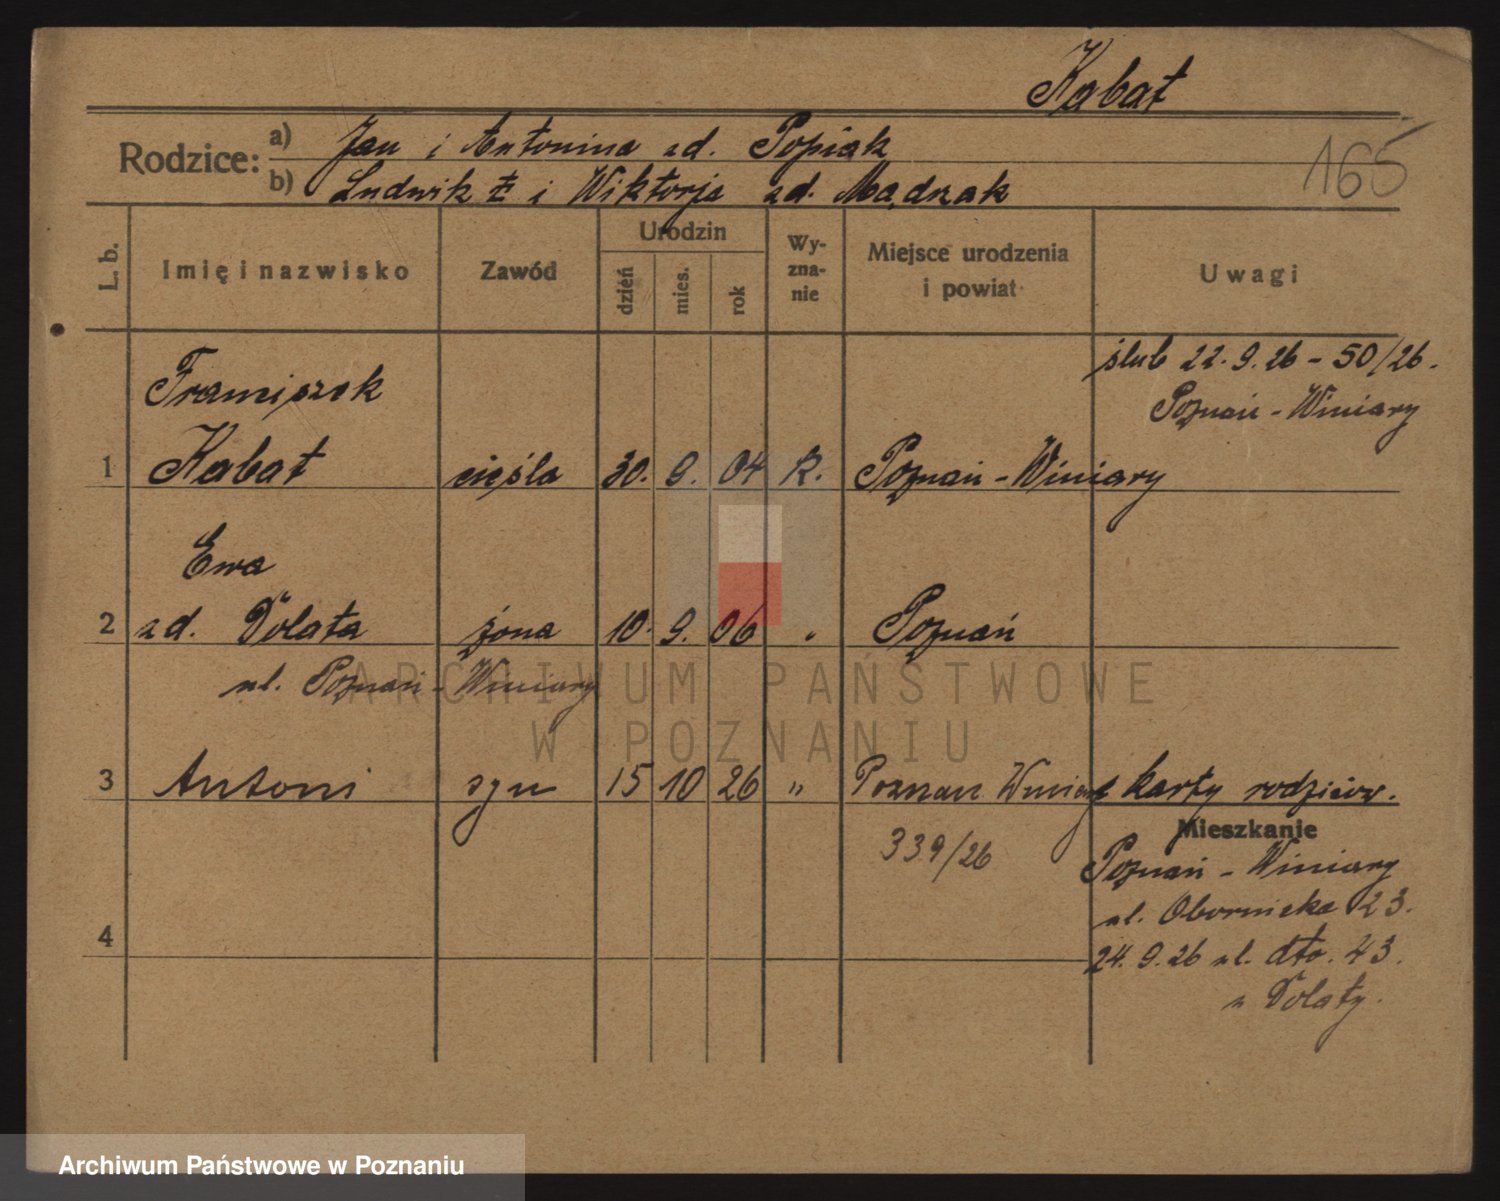 Kabat
165
Rodzice:
a) Jan i Antonina zd. Popiak
b) Ludwik i Wiktorja zd. Mądrzak
L. b.
Imię i nazwisko
Zawód
Urodzin
dzień
mies.
rok
Wy-
zna-
nie
Miejsce urodzenia
i powiat
Uwagi
ślub 22.9.26 - 50/26.
Poznań - Winiary
Franciszek
1 Kabat cieśla 30. 9. 04 R. Poznań - Winiary
Ewa
2 zd. Dolata żona 10. 9. 06 " Poznań
ul. Poznań - Winiary
3 Antoni syn 15 10 26 " Poznan Winiary z karty rodziców.
339/26
Mieszkanie
Poznań - Winiary
ul. Obornicka 23.
24.9.26 ul. dto. 43.
u Dolaty.
4
ARCHIWUM PAŃSTWOWE
W POZNANIU
Archiwum Państwowe w Poznaniu